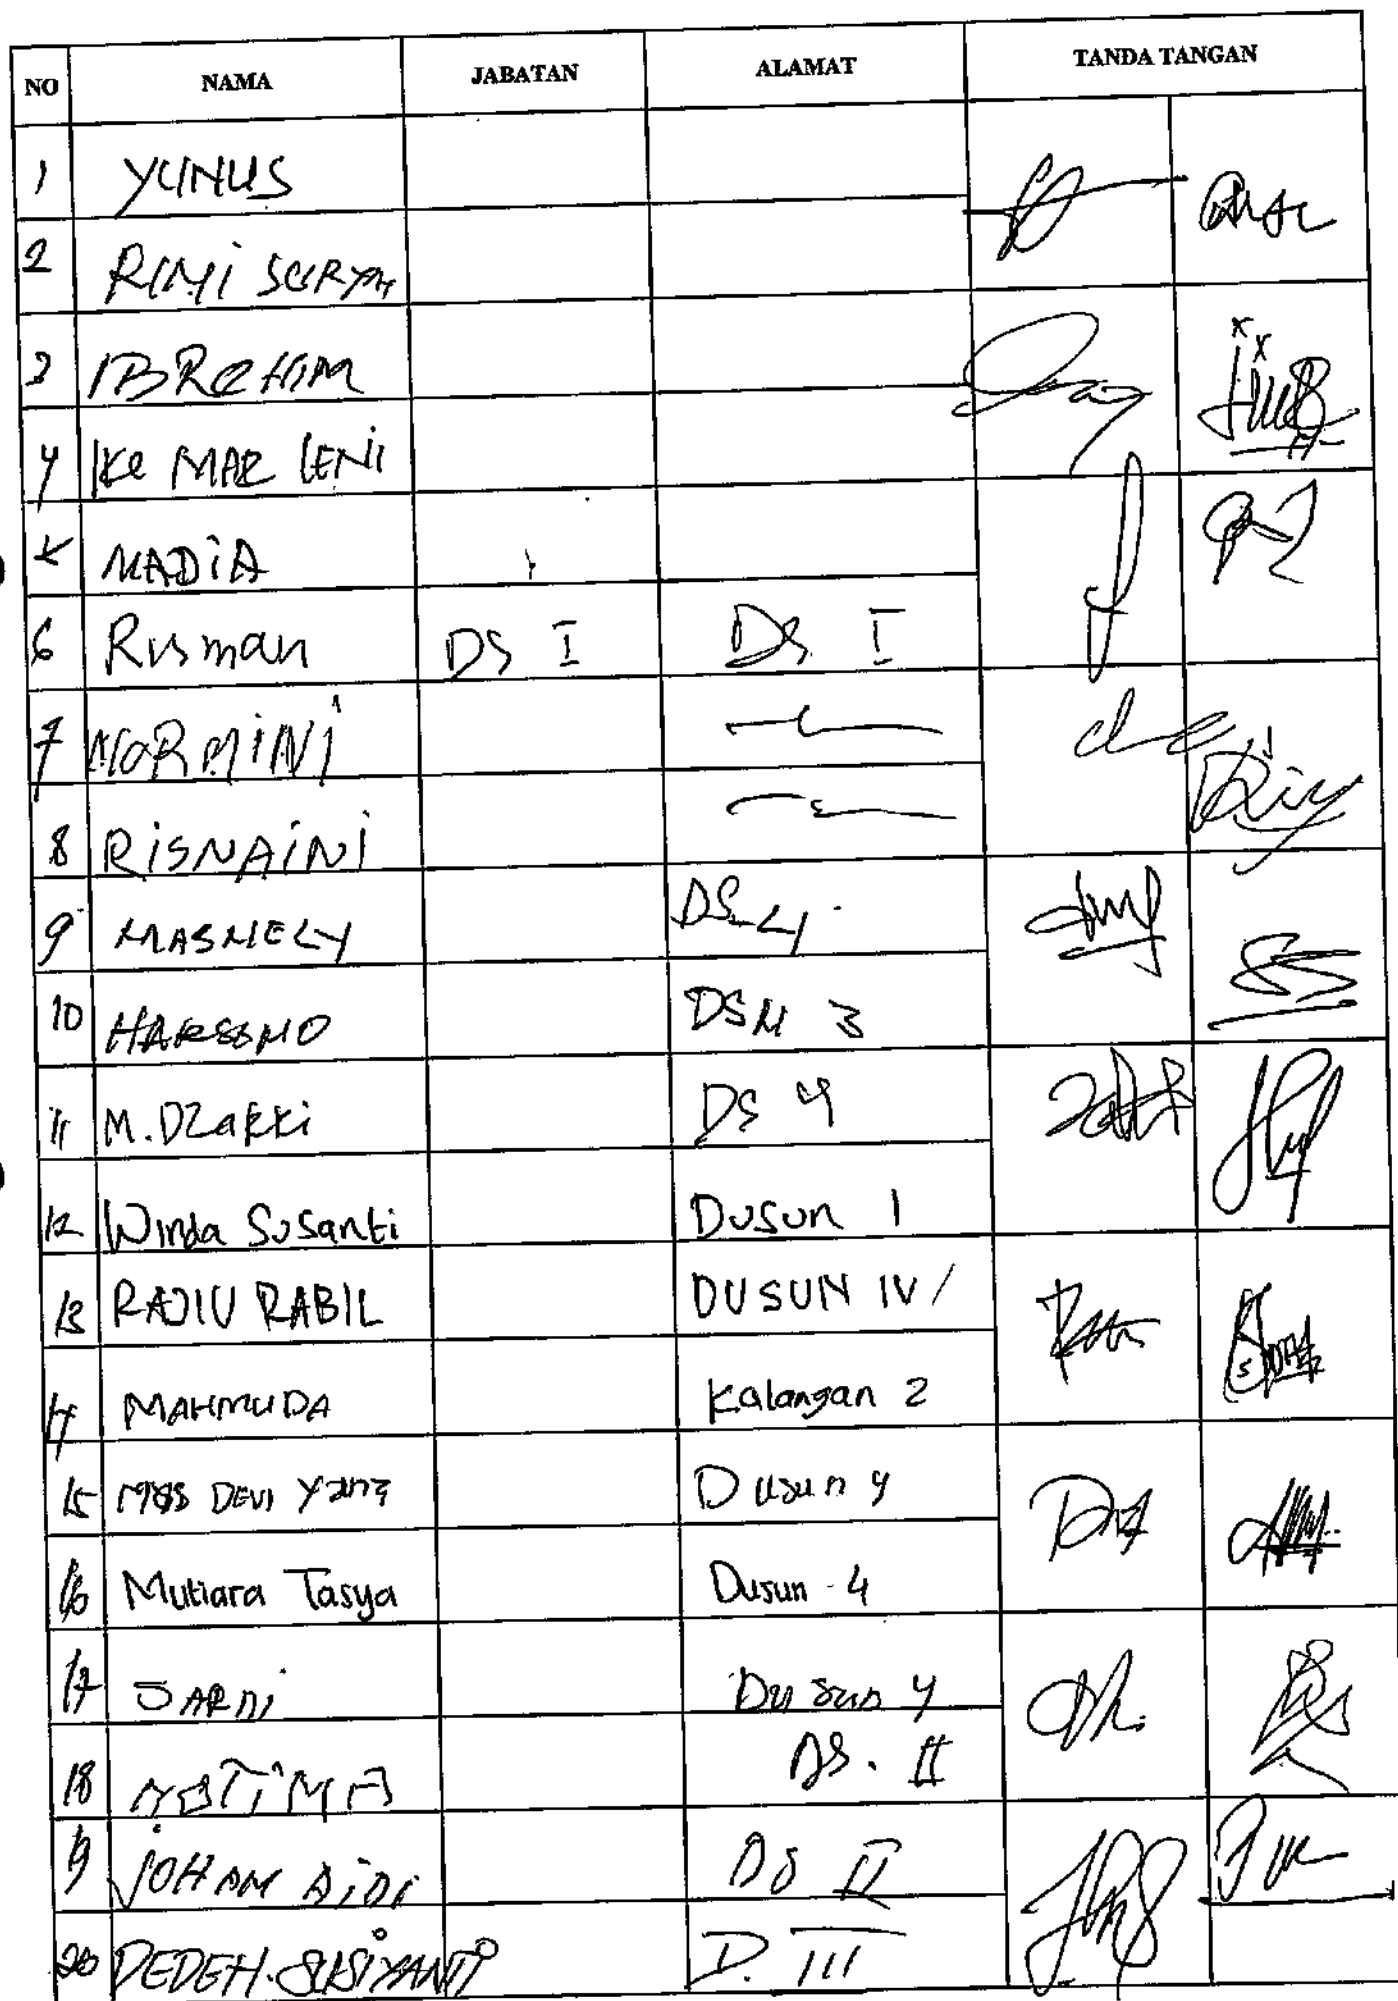 NO NAMA JABATAN ALAMAT TANDA TANGAN
1 YUNUS
2 RIMI SURYA
3 IBREHIM
4 IKE MAR LENI
5 MADIA
6 Rusman DS I DS I
7 NORMINI
8 RISNAINI
9 MASNELY DS-4
10 HARSONO DSN 3
11 M. DZakki DS 4
12 Winda Susanti Dusun 1
13 RAJIU RABIL DUSUN IV /
14 MAHMUDA Kalangan 2
15 DEVI Dusun 4
16 Mutiara Tasya Dusun - 4
17 SARNI Dusun 4
18 DS. II
19 JOHAM AIDI DS II
20 DEDEH. SUSIYANTI D. III